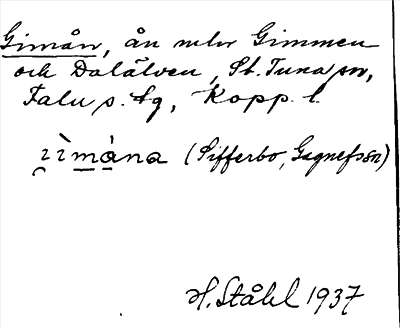 Gimån, ån mlır Gimmen
och Dalälven, St. Tuna sn,
Falu s. tg, Kopp. l.
ìmåna (Sifferbo, Gagnefs sn)
H. Ståhl 1937